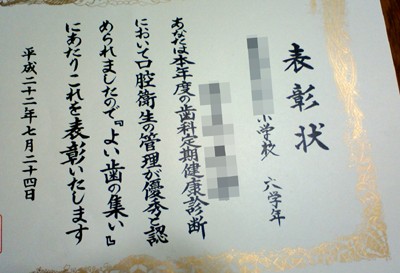 表彰状
小学校 六学年
あなたは本年度の歯科定期健康診断
において口腔衛生の管理が優秀と認
められましたので『よい歯の集い』
にあたりこれを表彰いたします
平成二十二年七月二十四日